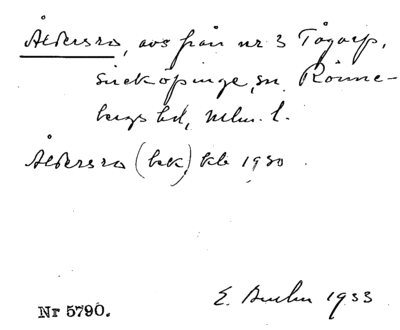 Åldersro, avs från nr 3 Tågarp,
Sireköpinge sn Rönne-
bergs hd, Mlm. l.
Åldersro (bek) kb 1930.
Nr 5790. E. 1933